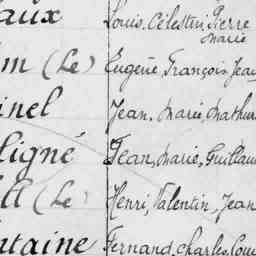 aux Louis, Célestin, Pierre
Marie
m (Le) Eugène, François, Jean
inel Jean, Marie, Mathur
ligné Jean, Marie, Guillau
ll (Le Henri, Valentin, Jean
ntaine Fernand, Charles, Loui